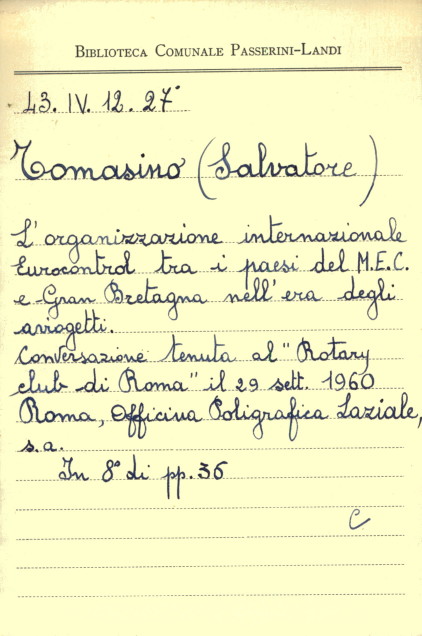 BIBLIOTECA COMUNALE PASSERINI-LANDI
43. IV. 12. 27°
Tomasino (Salvatore)
L'organizzazione internazionale
Eurocontrol tra i paesi del M.E.C.
e Gran Bretagna nell'era degli
arrogetti.
Conversazione tenuta al "Rotary
club di Roma" il 29 sett. 1960
Roma, Officina Poligrafica Laziale,
s.a.
In 8° di pp. 36
C